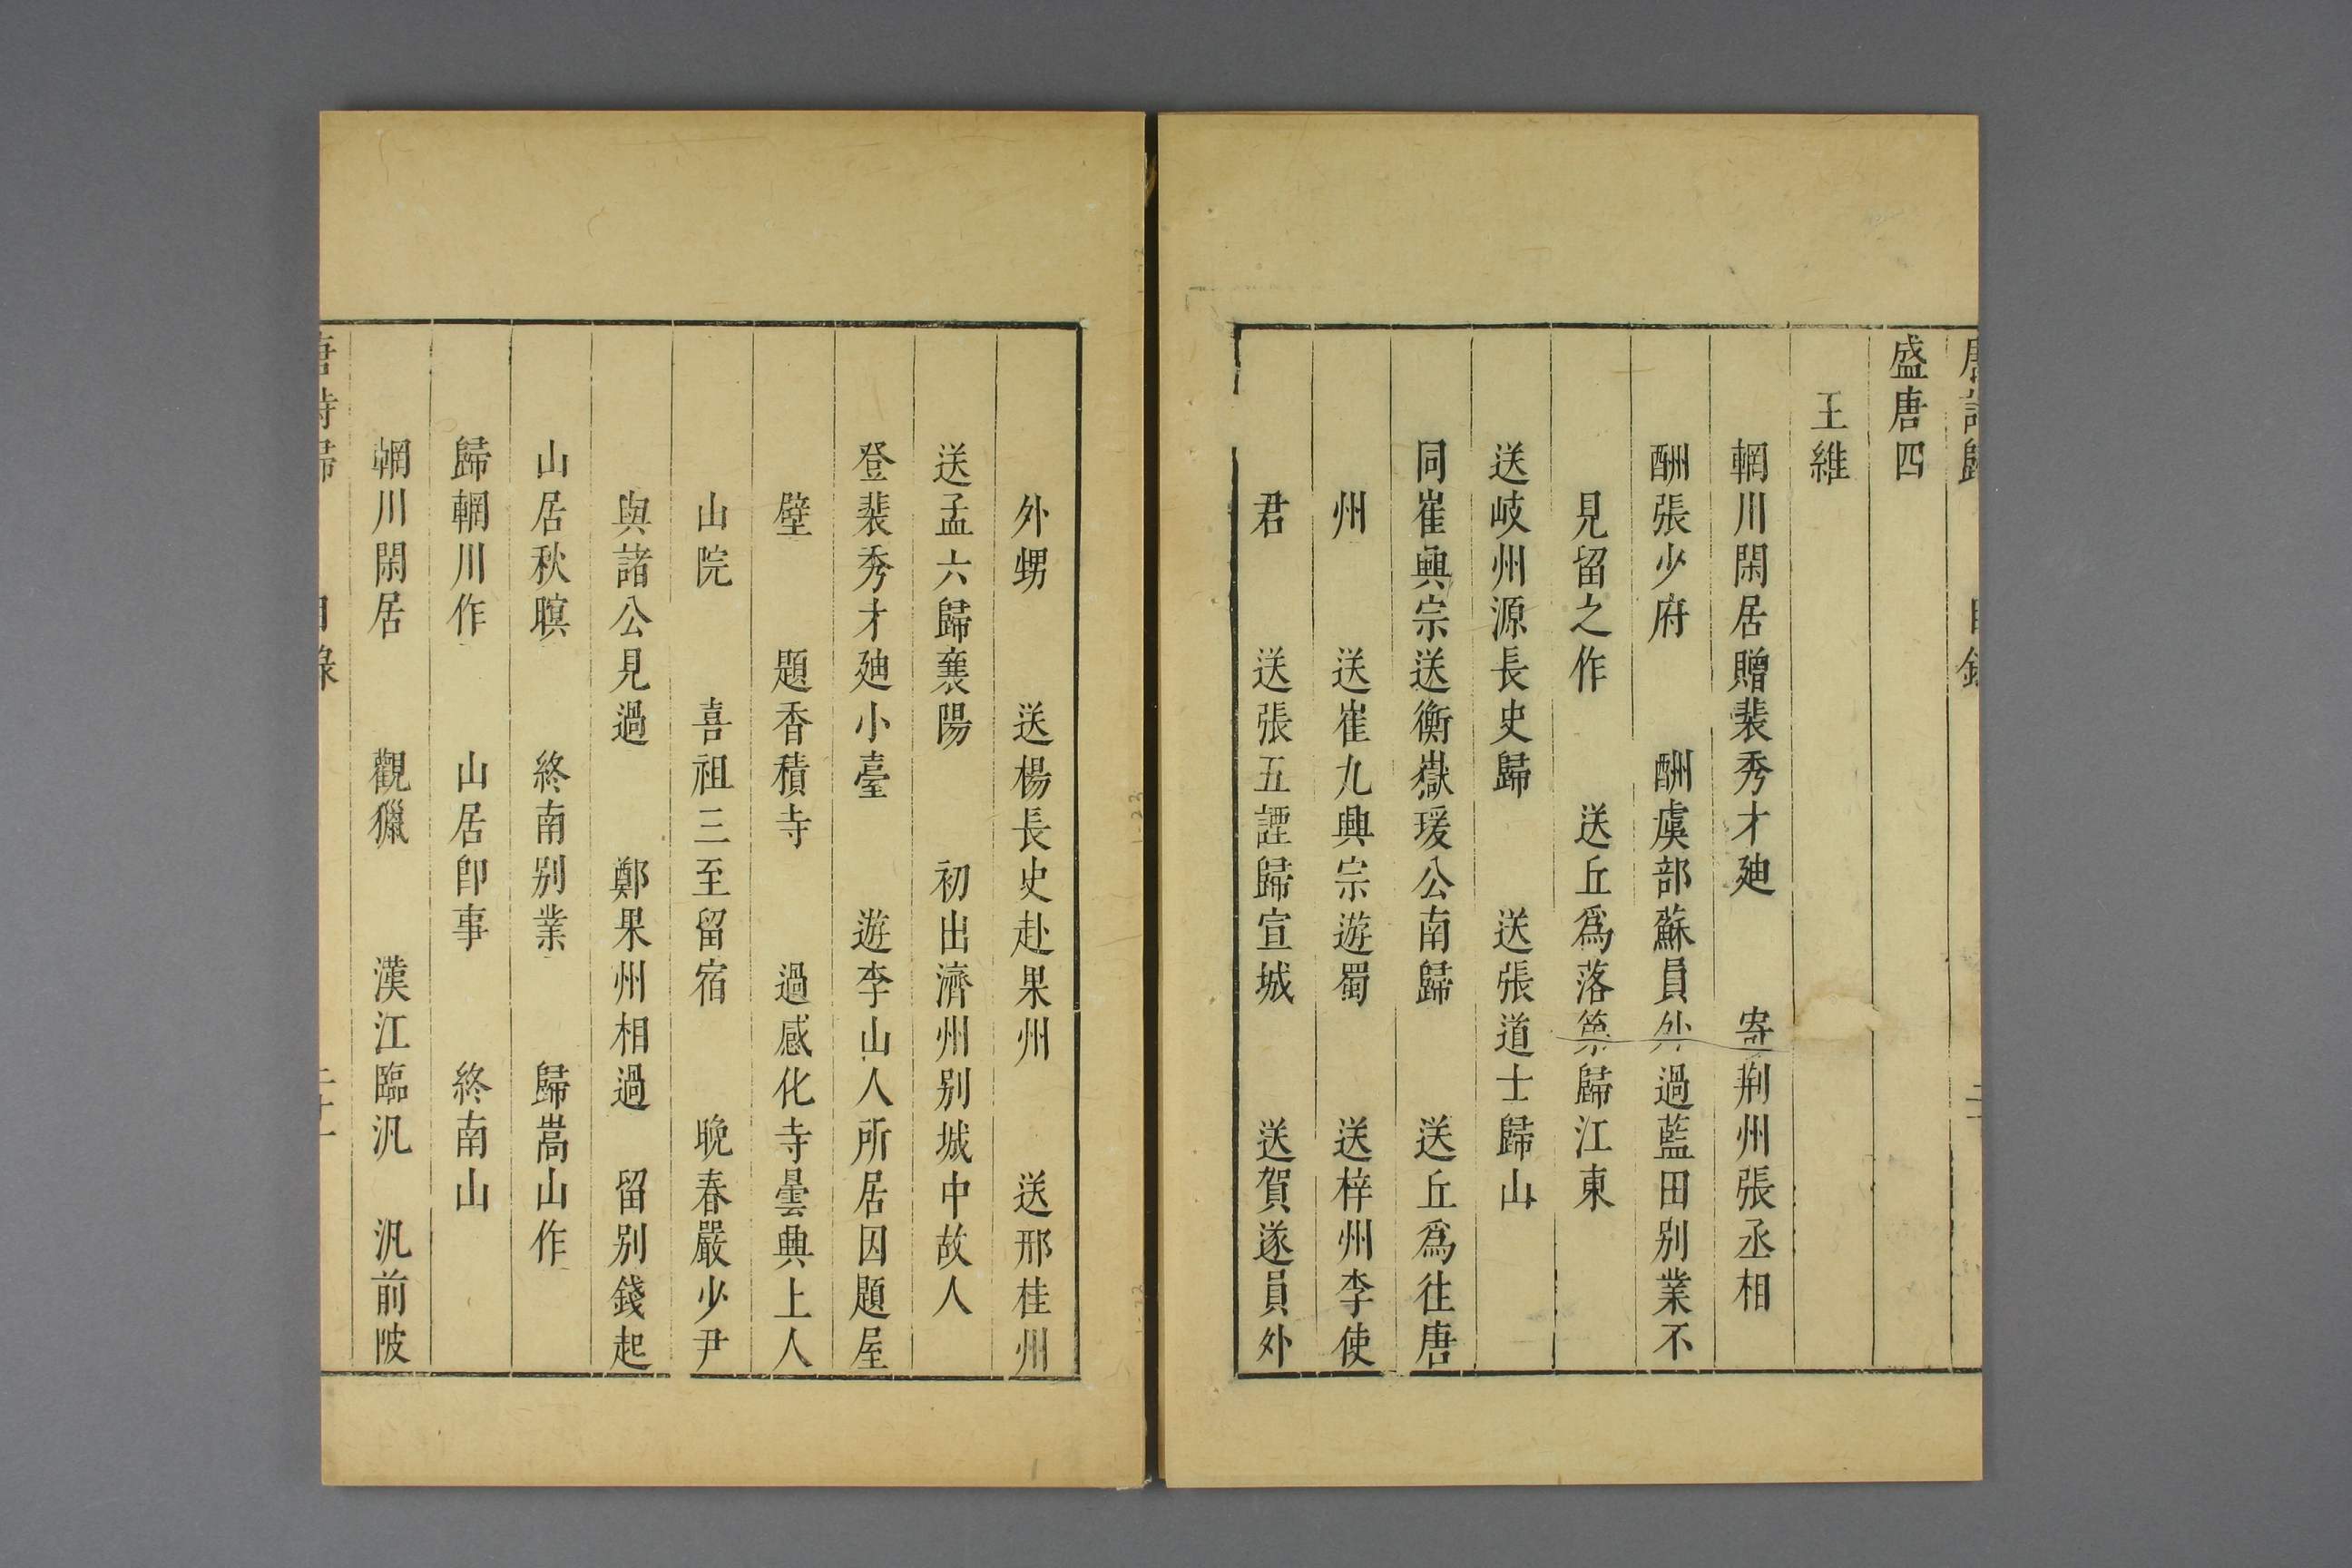 唐詩歸 目錄
盛唐四
王維
輞川閑居贈裴秀才廸 寄荆州張丞相
酬張少府 酬虞部蘇員外過藍田别業不
見留之作 送丘爲落第歸江東
送岐州源長史歸 送張道士歸山
同崔興宗送衡嶽瑗公南歸 送丘爲往唐
州 送崔九興宗遊蜀 送梓州李使
君 送張五諲歸宣城 送賀遂員外
外甥 送楊長史赴果州 送邢桂州
送孟六歸襄陽 初出濟州别城中故人
登裴秀才廸小臺 遊李山人所居因題屋
壁 題香積寺 過感化寺曇興上人
山院 喜祖三至留宿 晚春嚴少尹
與諸公見過 鄭果州相過 留别錢起
山居秋暝 終南别業 歸嵩山作
歸輞川作 山居卽事 終南山
輞川閑居 觀獵 漢江臨汎 汎前陂
唐詩歸 目錄